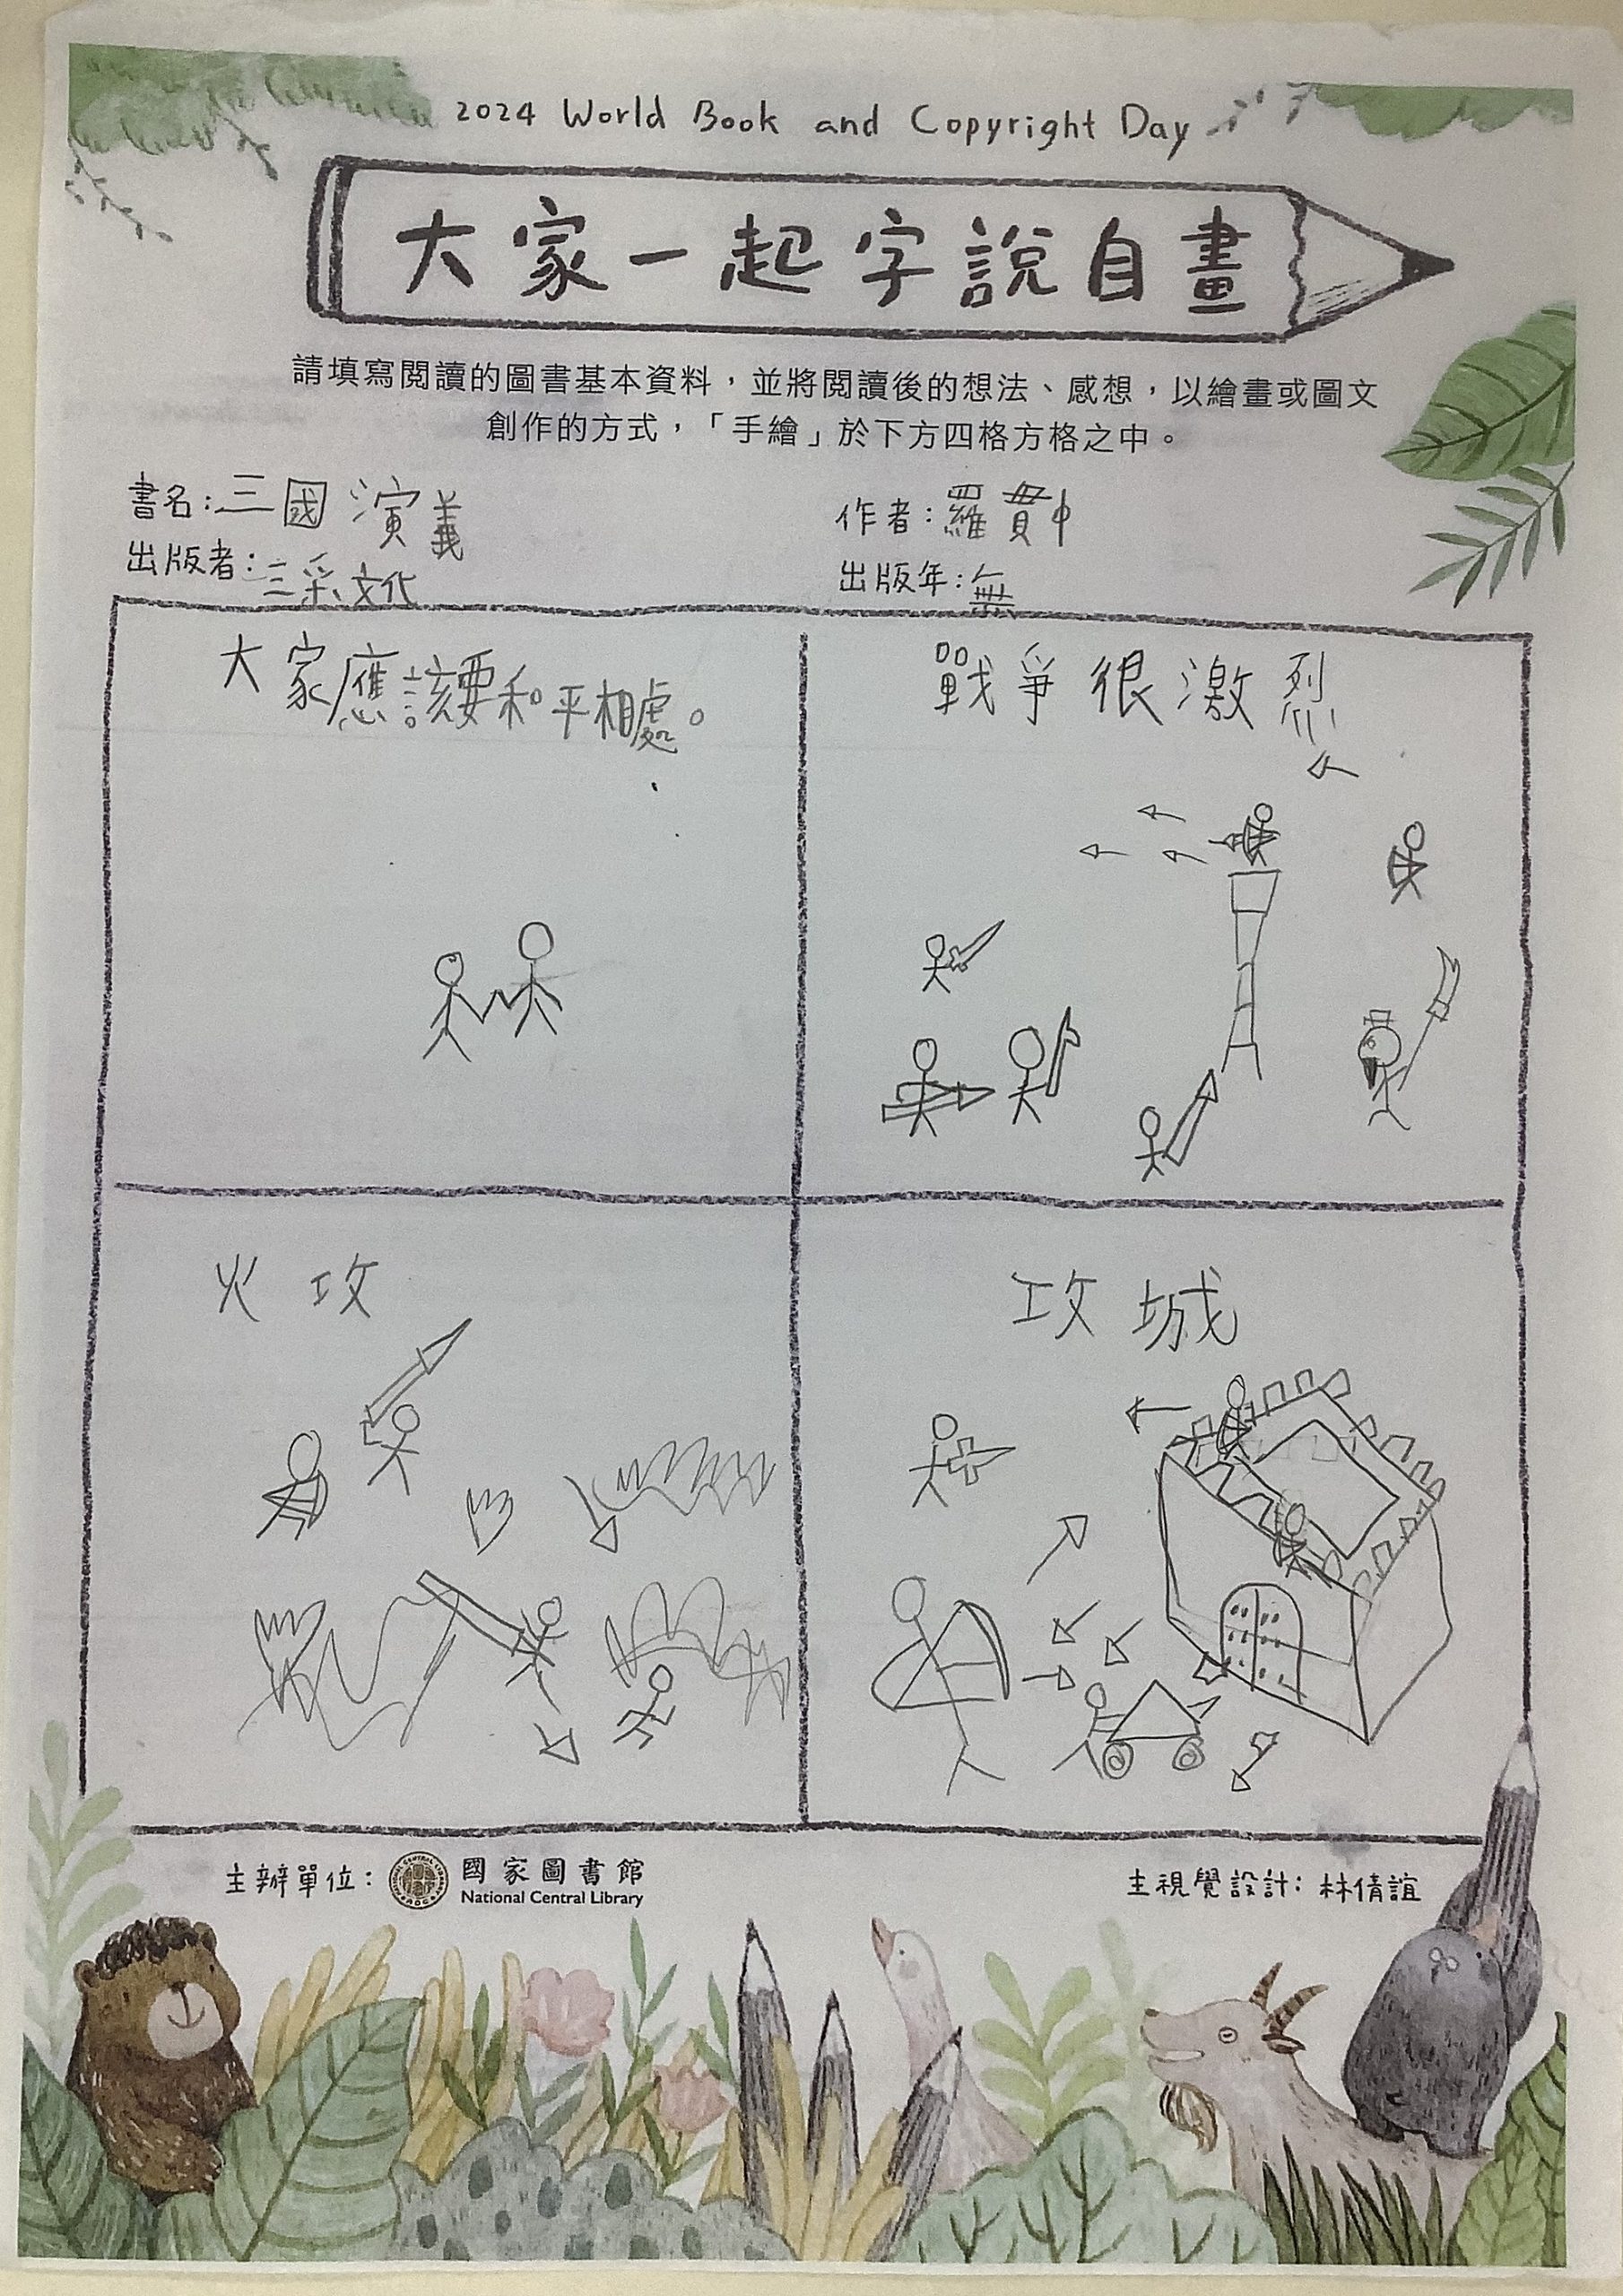 2024 World Book and Copyright Day
大家一起字說自畫
請填寫閱讀的圖書基本資料，並將閱讀後的想法、感想，以繪畫或圖文
創作的方式，「手繪」於下方四格方格之中。
書名：三國演義
作者：羅貫中
出版者：三采文化
出版年：無
大家應該要和平相處。
戰爭很激烈
火攻
攻城
主辦單位：國家圖書館
National Central Library
主視覺設計：林倩誼